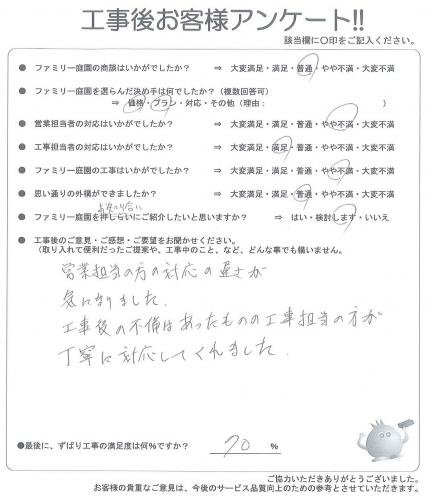 工事後お客様アンケート!!
該当欄に〇印をご記入ください。
● ファミリー庭園の商談はいかがでしたか? ⇒ 大変満足・満足・普通・やや不満・大変不満
● ファミリー庭園を選らんだ決め手は何でしたか?(複数回答可)
⇒ 価格・プラン・対応・その他(理由: )
● 営業担当者の対応はいかがでしたか? ⇒ 大変満足・満足・普通・やや不満・大変不満
● 工事担当者の対応はいかがでしたか? ⇒ 大変満足・満足・普通・やや不満・大変不満
● ファミリー庭園の工事はいかがでしたか? ⇒ 大変満足・満足・普通・やや不満・大変不満
● 思い通りの外構ができましたか? ⇒ 大変満足・満足・普通・やや不満・大変不満
● ファミリー庭園をご紹介したいと思いますか? ⇒ はい・検討します・いいえ
● 工事後のご意見・ご感想・ご要望をお聞かせください。
(取り入れて便利だったご提案や、工事中のこと、など、どんな事でも構いません。
営業担当の方の対応の遅さが
気になりました.
工事後の不備はあったものの工事担当の方が
丁寧に対応してくれました.
●最後に、ずばり工事の満足度は何%ですか? 70 %
ご協力いただきありがとうございました。
お客様の貴重なご意見は、今後のサービス品質向上のための参考とさせていただきます。